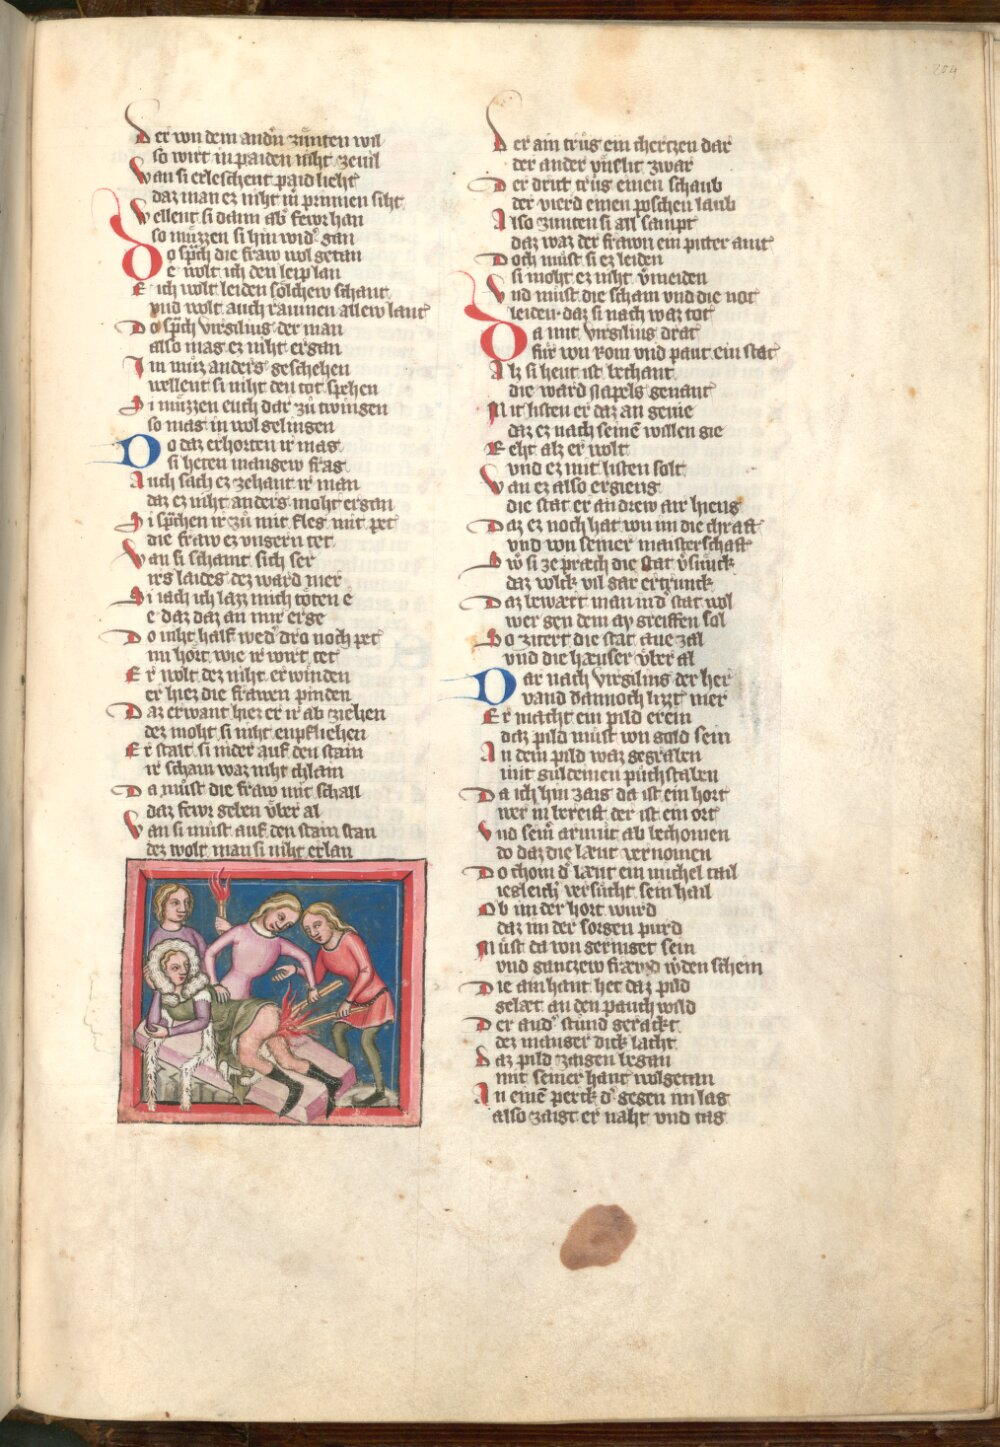 204
Der von dem andn zunten wil
so wirt in paiden niht ze vil
Wan si erleschent paid lieht
daz man ez niht in prinnen siht
Wellent si dann ab fewr han
so muezzen si hin wid gan
Do spch die fraw wol getan
e wolt ich den leip lan
E ich wolt leiden soelchew schant
vnd wolt auch raumen allew lant
Do spch virgilius der man
also mag ez niht ergan
In muz anders geschehen
wellent si niht den tot spehen
Si muezzen euch dar zu twingen
so mag in wol gelingen
Do daz erhorten ir mag
si heten mangew frag
Auch sach ez zehant ir man
daz ez niht anders moht ergan
Si spchen ir zu mit fleg mit pet
die fraw ez vngern tet
Wan si schamt sich ser
irs laides dez ward mer
Si iach ich lazz mich toten e
e daz daz an mir erge
Do niht half wed dro noch pet
nu hort wie ir wirt tet
Er wolt dez niht erwinden
er hiez die frawen pinden
Daz erwant hiez er ir ab ziehen
dez moht si niht enpfliehen
Er stalt si nider auf den stain
ir scham waz niht chlain
Da must die fraw mit schall
daz fewr geben vber al
Wan si must auf den stain stan
dez wolt man si niht erlan
Der ain trug ein chertzen dar
der ander vnslit zwar
Der drit trug einen schaub
der vierd einen poschen laub
Also zunten si all sampt
daz waz der frawn ein piter ampt
Doch must si ez leiden
si moht ez niht vmeiden
Vnd must die scham vnd die not
leiden daz si nach waz tot
Da mit virgilius drat
fur von Rom vnd paut ein stat
Alz si heut ist bechant
die ward napels genant
Mit listen er daz an gevie
daz ez nach seinē willen gie
Reht alz er wolt
vnd ez mit listen solt
Wan ez also ergieng
die stat er an drew air hieng
Daz ez noch hat von im die chraft
vnd von seiner maisterschaft
Sw si ze prach die stat vsunck
daz volck vil gar ertrunck
Daz bewaert man in d stat wol
wer gen dem ay greiffen sol
So zitert die stat ane zal
vnd die haeuser vber al
Dar nach virgilius der her
vand dannoch lizt mer
Er macht ein pild erein
daz pild must von gold sein
An dem pild waz gegraben
mit guldeinen puchstaben
Da ich hin zaig da ist ein hort
wer in bereift der ist ein ort
Vnd seinr armut ab bechomen
do daz die laeut vernomen
Do chom d laeut ein michel tail
iegleich versucht sein hail
Ob im der hort wurd
daz im der sorgen purd
Must da von geringet sein
vnd gantzew fraevd wden schein
Die ain hant het daz pild
gelaet an den pauch wild
Der and stund gerackt
dez manger dick lacht
Daz pild zaigen began
mit seiner hant wolgetan
An einē perck d gegen im lag
also zaigt er naht vnd tag